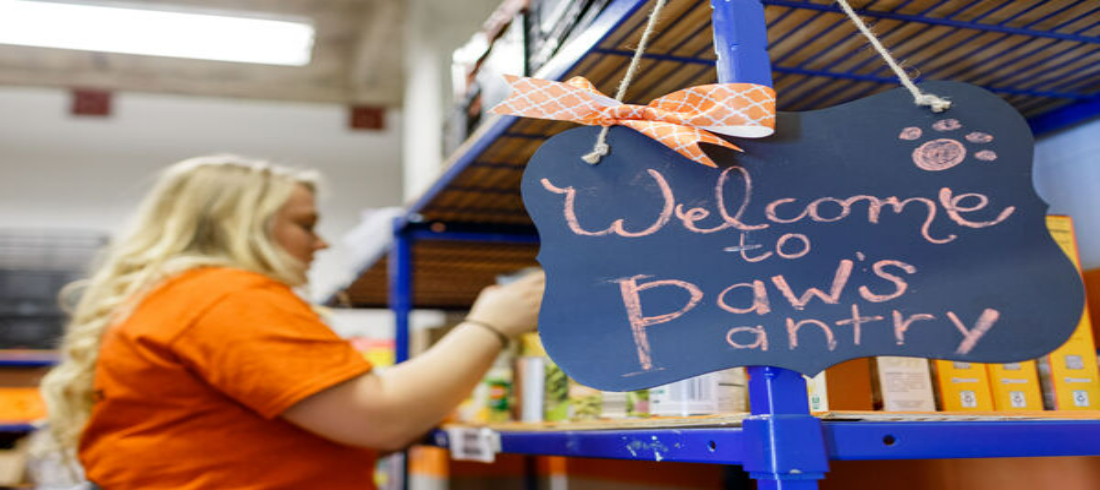 Welcome
to
Paw's
Pantry